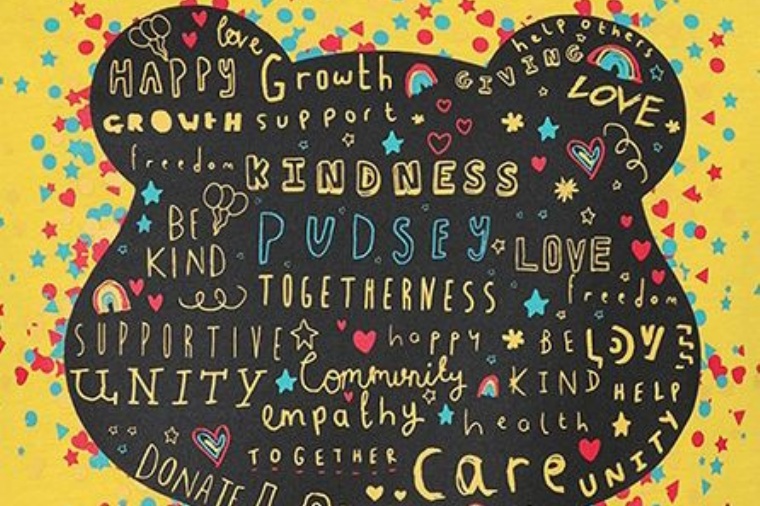 love
help others
HAPPY Growth GIVING LOVE
GROWTH support
freedom KINDNESS
BE KIND PUDSEY LOVE
TOGETHERNESS freedom
SUPPORTIVE happy BE LOVE
UNITY Community KIND HELP
empathy health
TOGETHER Care UNITY
DONATE